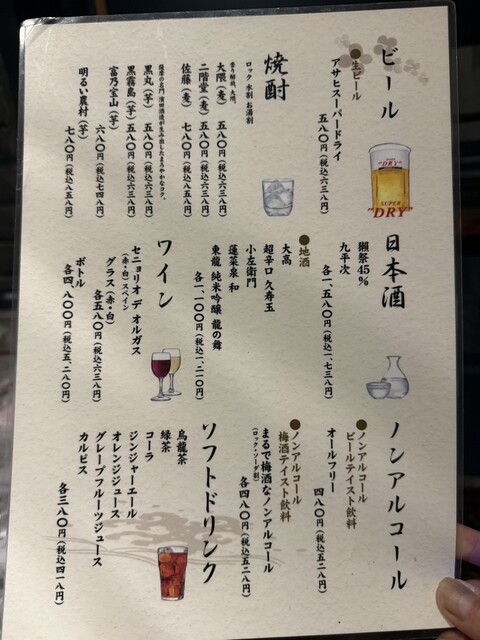 ビール
●生ビール
アサヒスーパードライ
五八〇円(税込六三八円)
"DRY"
SUPER
"DRY"
焼酎
ロック 水割 お湯割
香り醸候、大隅。
大隅(麦) 五八〇円(税込六三八円)
二階堂(麦) 五八〇円(税込六三八円)
佐藤(麦) 七八〇円(税込八五八円)
薩摩の名門 濵田酒造が生み出したまろやかなコク。
黒丸(芋) 五八〇円(税込六三八円)
黒霧島(芋) 五八〇円(税込六三八円)
富乃宝山(芋)
六八〇円(税込七四八円)
明るい農村(芋)
七八〇円(税込八五八円)
日本酒
獺祭45%
九平次
各一、五八〇円(税込一、七三八円)
●地酒
大高
超辛口 久寿玉
小左衛門
蓬莱泉 和
東龍 純米吟醸 龍の舞
各一、一〇〇円(税込一、二一〇円)
ワイン
セニョリオ デ オルガス
(赤・白)スペイン
グラス(赤・白)
各五八〇円(税込六三八円)
ボトル
各四、八〇〇円(税込五、二八〇円)
ノンアルコール
●ノンアルコール
ビールテイスト飲料
オールフリー
四八〇円(税込五二八円)
●ノンアルコール
梅酒テイスト飲料
まるで梅酒なノンアルコール
(ロック・ソーダ割)
各四八〇円(税込五二八円)
ソフトドリンク
烏龍茶
緑茶
コーラ
ジンジャーエール
オレンジジュース
グレープフルーツジュース
カルピス
各三八〇円(税込四一八円)